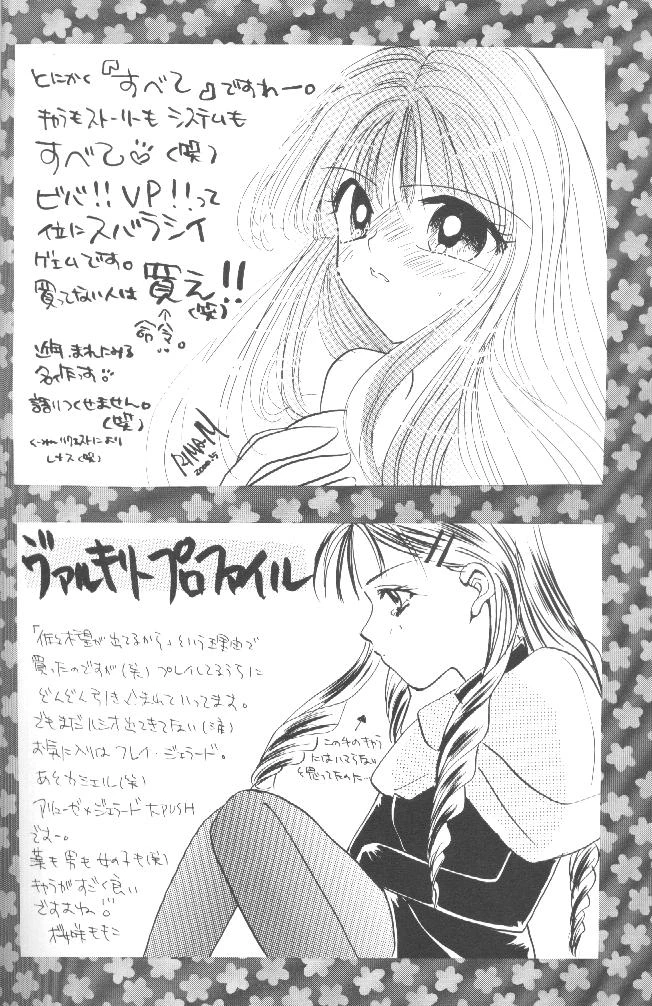 とにかく『すべて』ですわー。
キャラもストーリーもシステムも
すべて♡(笑)
ビバ!!VP!!って
位にスバラシイ
ゲェムです。
買ってない人は買え!!(笑)
↑
命令
近年まれにみる
名作っす
語りつくせません。
(笑)
レナス(笑)
RINA・M
2000.5
ヴァルキリープロファイル
「佐々木望が出てるから」という理由で
買ったのですが(笑)プレイしてるうちに
どんどん引き込まれていってます。
でもまだルシオ出てきてない(涙)
お気に入りはフレイ・ジェラード。
あとカシェル(笑)
アリューゼ×ジェラード大PUSH
ですー。
男も女の子も(笑)
キャラがすごく良い
ですよね
ももこ
この手のキャラ
には
と思ってたのた…